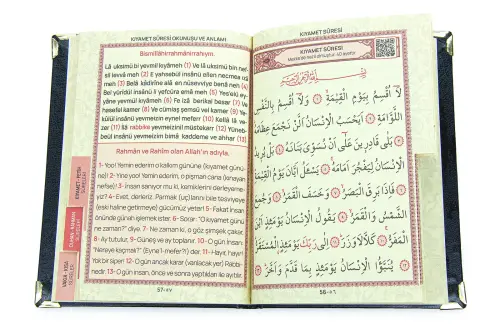 KIYAMET SÛRESİ OKUNUŞU VE ANLAMI
Bismillâhirrahmânirrahıym.
Lâ uksimü bi yevmil kıyâmeh (1) Ve Lâ uksimü bin nef-
sil levvâ meh (2) E yahsebül insânü ellen necmea ızâ
meh (3) Belâ kâdirîne alâ en nüsevviye benâ neh (4)
Bel yürîdül insânü li yefcüra emâ meh (5) Yes'elü ey-
yâne yevmül kıyâmeh (6) Fe izâ berikal besar (7) Ve
hasefel kamer (8) Ve cümiaş şemsü vel kamer (9) Ye-
kulül insânü yevmeizin eynel mefer (10) Kellâ lâ ve-
zer (11) İlâ rabbike yevmeizinil müstekarr (12) Yüneb-
beül insânü yevmeizin bimâ kaddeme ve ahhar (13)
Rahmân ve Rahîm olan Allah'ın adıyla.
1- Yoo! Yemin ederim o kalkım gününe (kıyamet günü-
ne)! 2- Yine yoo! Yemin ederim, o pişman cana (kınayan
nefse)! 3- İnsan sanıyor mu ki, kemiklerini derleyeme-
yiz? 4- Evet, derleriz. Parmak (uç) larını bile tesviyeye
(eski haline getirmeye) gücümüz yeter! 5- Fakat insan
önünde günah işlemek ister. 6- Sorar: "O kıyamet günü
ne zaman?" diye. 7- Ne zaman ki, o göz şimşek çakar,
8- Ay tutulur, 9- Güneş ve ay toplanır. 10- O gün insan:
"Nereye kaçmalı?" (Eyne'l-mefer?) der. 11- Hayır, hayır!
Yok bir siper! 12- O gün ancak karar (varılacak yer) Rabbi-
nedir. 13- O gün insan, önce ve sonra yaptıkları ile ayıtılır.
57-٥٧
KIYAMET SÛRESİ
KIYAMET SÛRESİ
Mekke'de nazil olmuştur. 40 ayettir.
بِسْمِ اللّٰهِ الرَّحْمٰنِ الرَّحِيمِ
لَٓا اُقْسِمُ بِيَوْمِ الْقِيٰمَةِۙ ﴿١﴾ وَلَٓا اُقْسِمُ بِالنَّفْسِ
اللَّوَّامَةِ ﴿٢﴾ اَيَحْسَبُ الْاِنْسَانُ اَلَّنْ نَجْمَعَ عِظَامَهُ ﴿٣﴾
بَلٰى قَادِرِينَ عَلٰٓى اَنْ نُسَوِّيَ بَنَانَهُ ﴿٤﴾ بَلْ يُرِيدُ
الْاِنْسَانُ لِيَفْجُرَ اَمَامَهُ ﴿٥﴾ يَسْـَٔلُ اَيَّانَ يَوْمُ الْقِيٰمَةِ ﴿٦﴾
فَاِذَا بَرِقَ الْبَصَرُ ﴿٧﴾ وَخَسَفَ الْقَمَرُ ﴿٨﴾ وَجُمِعَ
الشَّمْسُ وَالْقَمَرُ ﴿٩﴾ يَقُولُ الْاِنْسَانُ يَوْمَئِذٍ اَيْنَ
الْمَفَرُّ ﴿١٠﴾ كَلَّا لَا وَزَرَ ﴿١١﴾ اِلٰى رَبِّكَ يَوْمَئِذٍ الْمُسْتَقَرُّ ﴿١٢﴾
يُنَبَّؤُا الْاِنْسَانُ يَوْمَئِذٍ بِمَا قَدَّمَ وَاَخَّرَ ﴿١٣﴾
56-٥٦